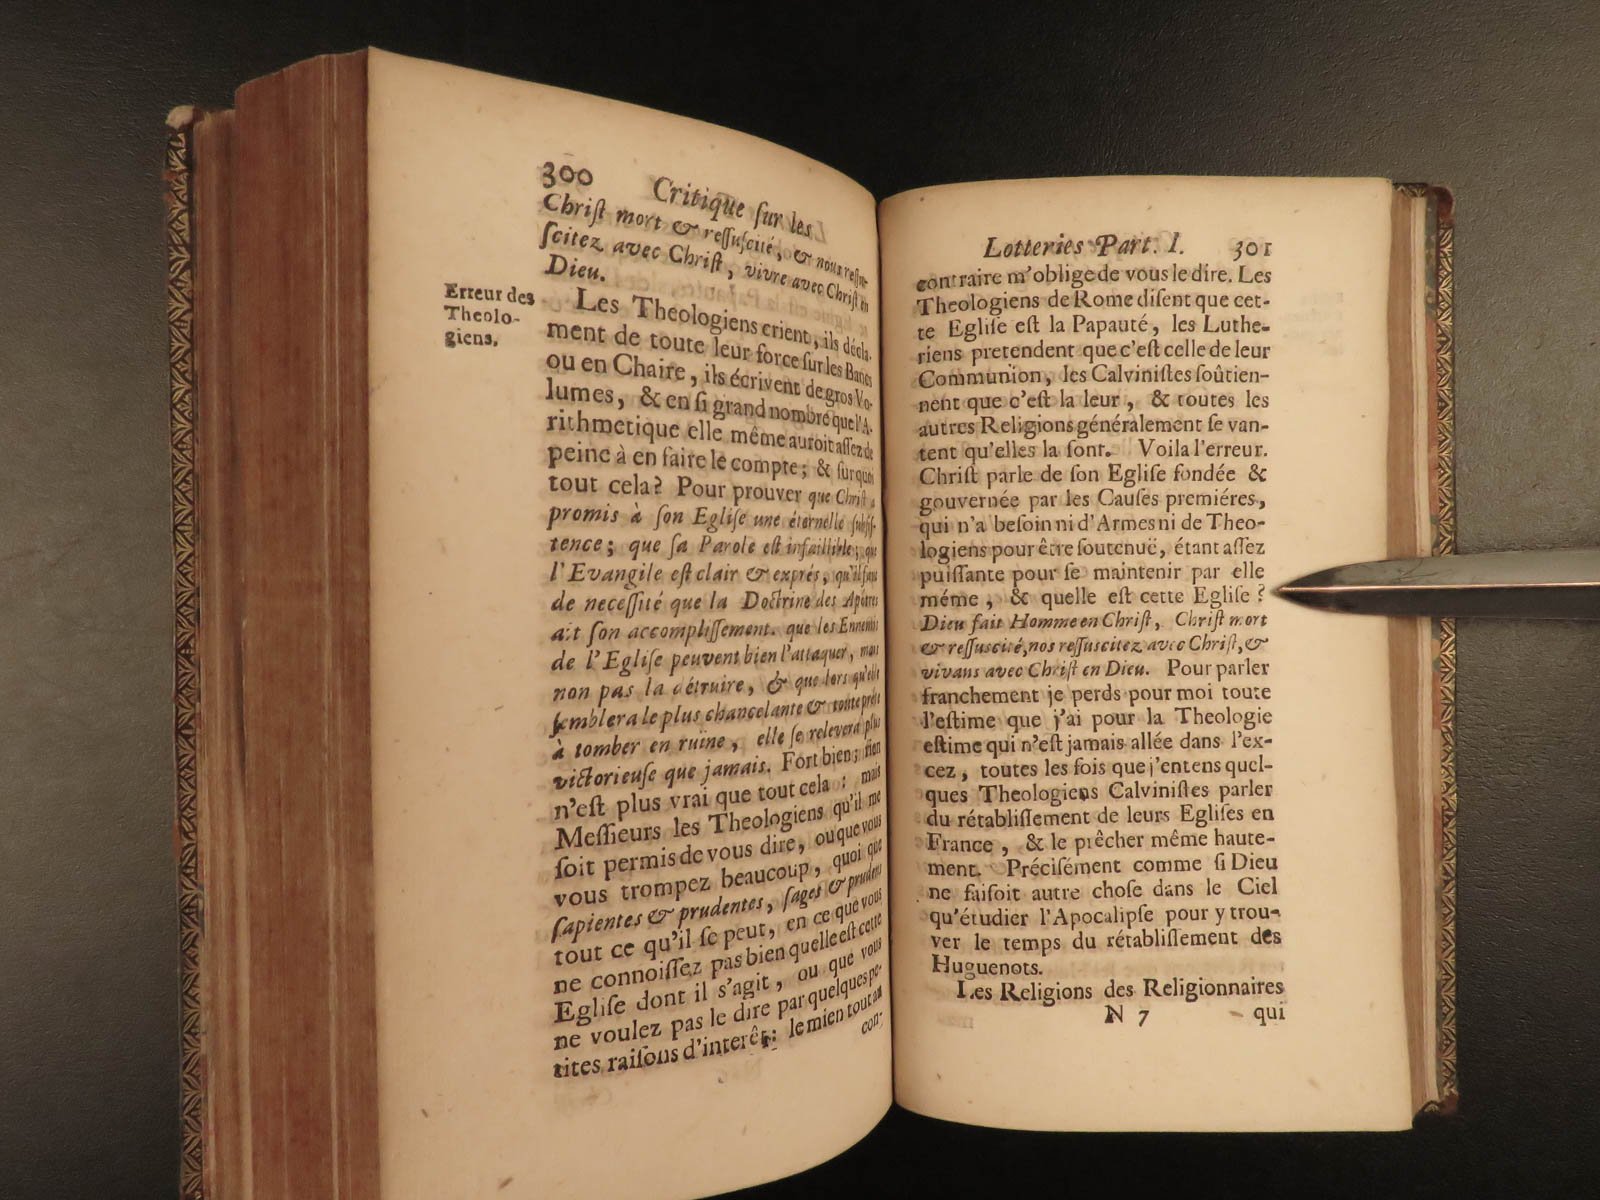 300 Critique sur les
Chriſt mort & reſſuſcité, & nous reſſuſ-
ſcitez avec Chriſt, vivre avec Chriſt en
Dieu.
Erreur des
Theolo-
giens.
Les Theologiens crient, ils décla-
ment de toute leur force ſur les Bancs
ou en Chaire, ils écrivent de gros Vo-
lumes, & en ſi grand nombre que l'A-
rithmetique elle même auroit aſſez de
peine à en faire le compte; & ſur quoi
tout cela? Pour prouver que Chriſt a
promis à ſon Egliſe une éternelle ſubſiſ-
tence; que ſa Parole eſt infaillible; que
l'Evangile eſt clair & exprés, qu'il faut
de neceſſité que la Doctrine des Apôtres
ait ſon accompliſſement. que les Ennemis
de l'Egliſe peuvent bien l'attaquer, mais
non pas la détruire, & que lors qu'elle
ſemblera le plus chancelante & toute prête
à tomber en ruïne, elle ſe relevera plus
victorieuſe que jamais. Fort bien; rien
n'eſt plus vrai que tout cela: mais
Meſſieurs les Theologiens qu'il me
ſoit permis de vous dire, ou que vous
vous trompez beaucoup, quoi que
ſapientes & prudentes, ſages & prudens
tout ce qu'il ſe peut, en ce que vous
ne connoiſſez pas bien quelle eſt cette
Egliſe dont il s'agit, ou que vous
ne voulez pas le dire par quelques pe-
tites raiſons d'interêt: le mien tout au
con-
Lotteries Part. I. 301
contraire m'oblige de vous le dire. Les
Theologiens de Rome diſent que cet-
te Egliſe eſt la Papauté, les Luthe-
riens pretendent que c'eſt celle de leur
Communion, les Calviniſtes ſoûtien-
nent que c'eſt la leur, & toutes les
autres Religions généralement ſe van-
tent qu'elles la ſont. Voila l'erreur.
Chriſt parle de ſon Egliſe fondée &
gouvernée par les Cauſes premiéres,
qui n'a beſoin ni d'Armes ni de Theo-
logiens pour être ſoutenuë, étant aſſez
puiſſante pour ſe maintenir par elle
méme, & quelle eſt cette Egliſe?
Dieu fait Homme en Chriſt, Chriſt mort
& reſſuſcité, nos reſſuſcitez avec Chriſt, &
vivans avec Chriſt en Dieu. Pour parler
franchement je perds pour moi toute
l'eſtime que j'ai pour la Theologie
eſtime qui n'eſt jamais allée dans l'ex-
cez, toutes les fois que j'entens quel-
ques Theologiens Calviniſtes parler
du rétabliſſement de leurs Egliſes en
France, & le prêcher même haute-
ment. Préciſément comme ſi Dieu
ne faiſoit autre choſe dans le Ciel
qu'étudier l'Apocalipſe pour y trou-
ver le temps du rétabliſſement des
Huguenots.
Les Religions des Religionnaires
N 7 qui